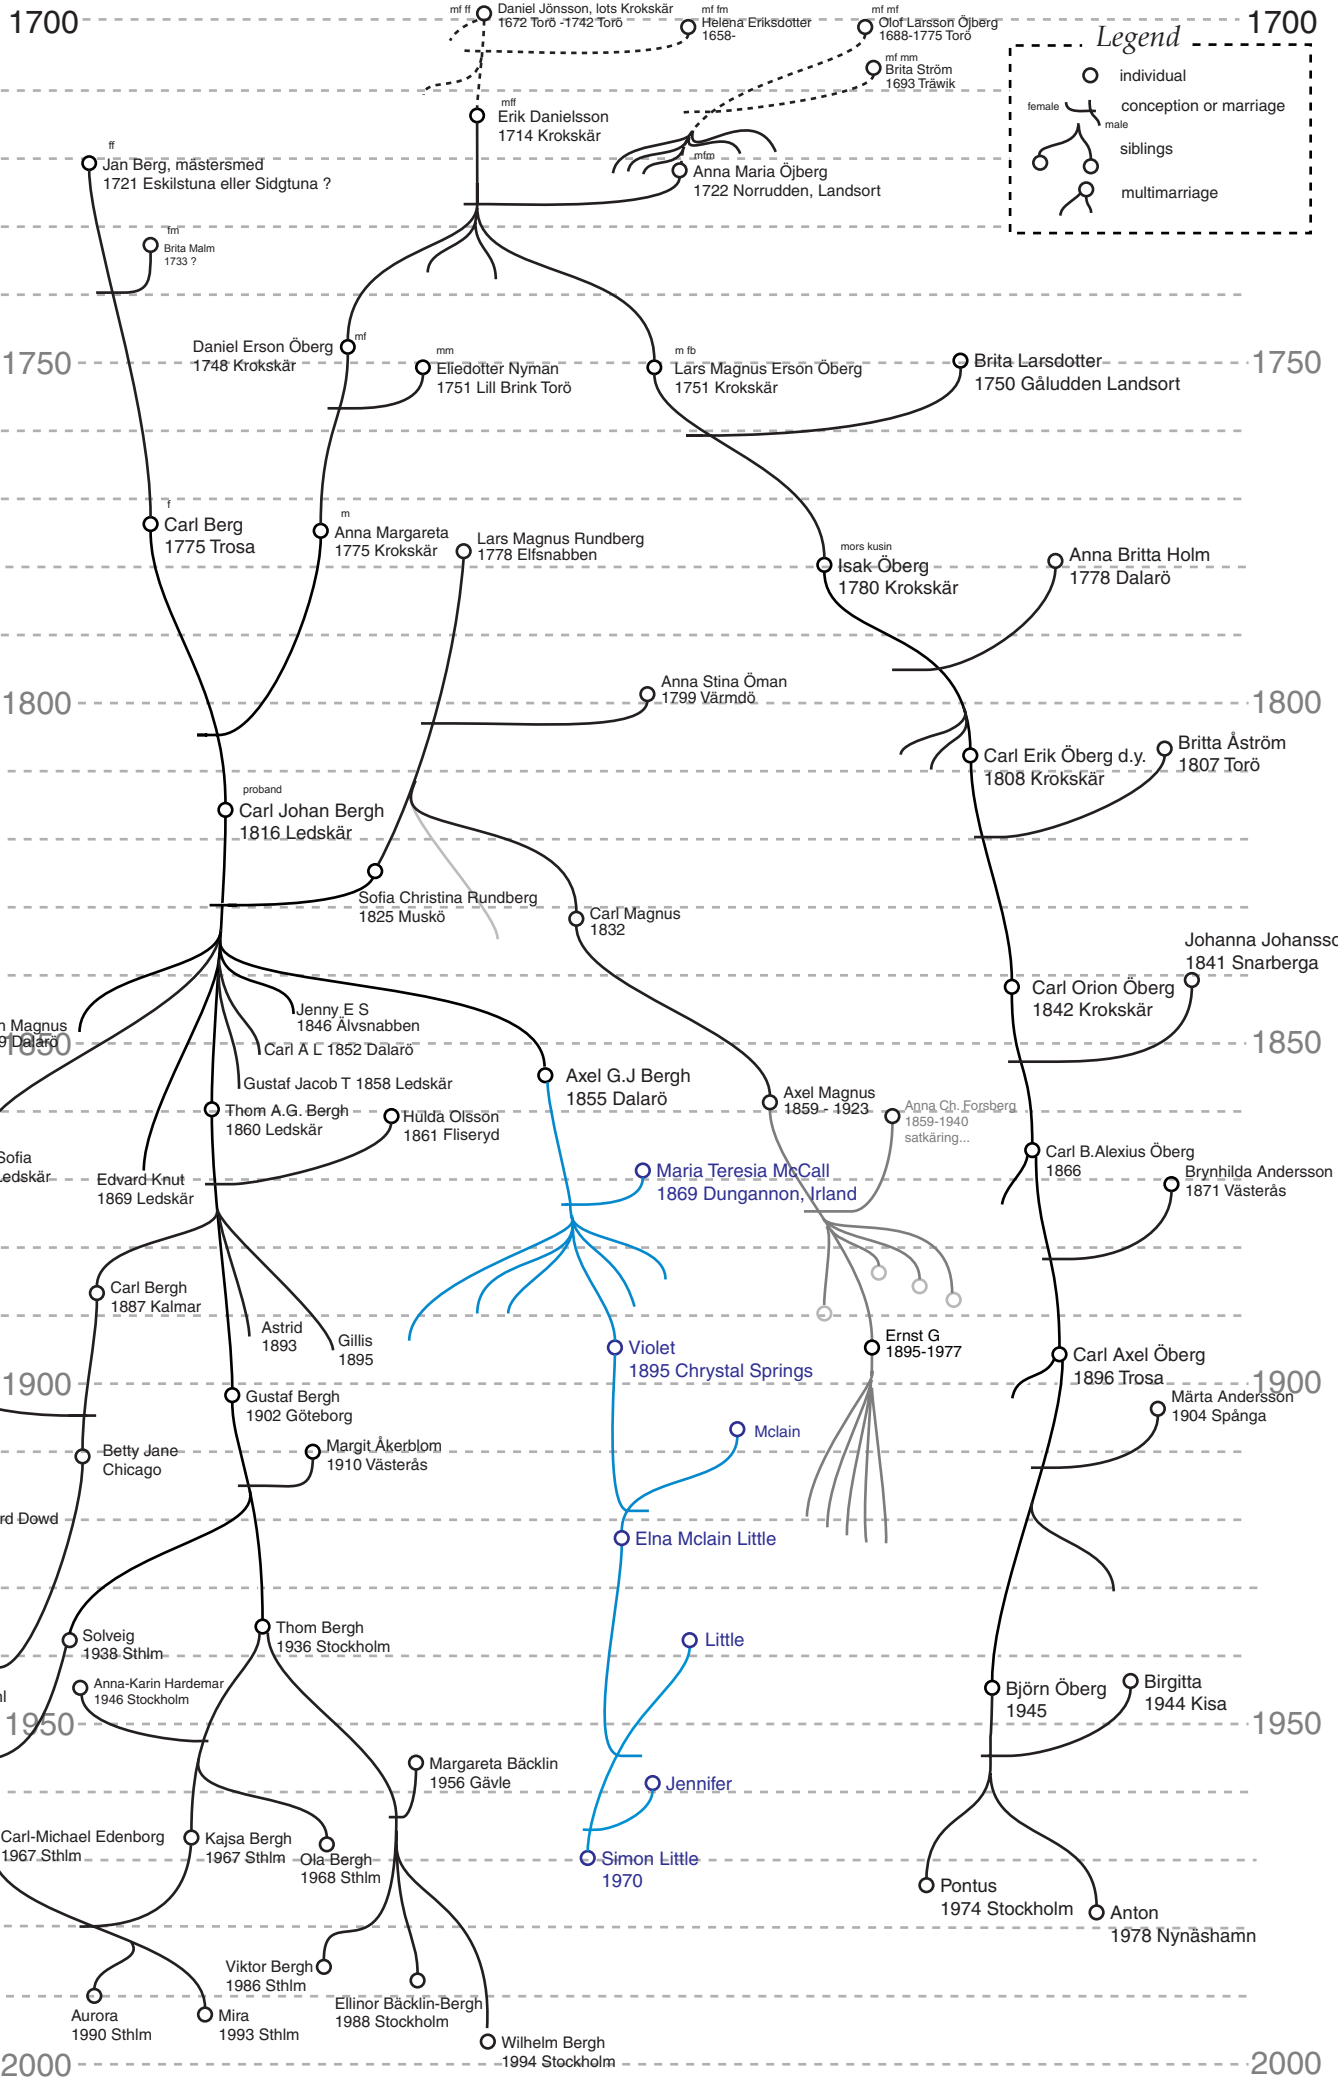 1700
1700
mf ff
Daniel Jönsson, lots Krokskär
1672 Torö -1742 Torö
mf fm
Helena Eriksdotter
1658-
mf mf
Olof Larsson Öjberg
1688-1775 Torö
mf mm
Brita Ström
1693 Träwik
Legend
individual
female
conception or marriage
male
siblings
multimarriage
mff
Erik Danielsson
1714 Krokskär
ff
Jan Berg, mästersmed
1721 Eskilstuna eller Sidgtuna ?
mfm
Anna Maria Öjberg
1722 Norrudden, Landsort
fm
Brita Malm
1733 ?
1750
1750
Daniel Erson Öberg
1748 Krokskär
mf
mm
Eliedotter Nyman
1751 Lill Brink Torö
m fb
Lars Magnus Erson Öberg
1751 Krokskär
Brita Larsdotter
1750 Gåludden Landsort
f
Carl Berg
1775 Trosa
m
Anna Margareta
1775 Krokskär
Lars Magnus Rundberg
1778 Elfsnabben
mors kusin
Isak Öberg
1780 Krokskär
Anna Britta Holm
1778 Dalarö
Anna Stina Öman
1799 Värmdö
1800
1800
Carl Erik Öberg d.y.
1808 Krokskär
Britta Åström
1807 Torö
proband
Carl Johan Bergh
1816 Ledskär
Sofia Christina Rundberg
1825 Muskö
Carl Magnus
1832
Johanna Johansso
1841 Snarberga
Carl Orion Öberg
1842 Krokskär
n Magnus
9 Dalarö
1850
1850
Jenny E S
1846 Älvsnabben
Carl A L 1852 Dalarö
Gustaf Jacob T 1858 Ledskär
Axel G.J Bergh
1855 Dalarö
Thom A.G. Bergh
1860 Ledskär
Hulda Olsson
1861 Fliseryd
Axel Magnus
1859 - 1923
Anna Ch. Forsberg
1859-1940
satkäring...
Sofia
Ledskär
Edvard Knut
1869 Ledskär
Maria Teresia McCall
1869 Dungannon, Irland
Carl B.Alexius Öberg
1866
Brynhilda Andersson
1871 Västerås
Carl Bergh
1887 Kalmar
Astrid
1893
Gillis
1895
Violet
1895 Chrystal Springs
Ernst G
1895-1977
Carl Axel Öberg
1896 Trosa
1900
1900
Gustaf Bergh
1902 Göteborg
Märta Andersson
1904 Spånga
Betty Jane
Chicago
Margit Åkerblom
1910 Västerås
Mclain
rd Dowd
Elna Mclain Little
Solveig
1938 Sthlm
Thom Bergh
1936 Stockholm
Little
Anna-Karin Hardemar
1946 Stockholm
Björn Öberg
1945
Birgitta
1944 Kisa
1950
1950
Margareta Bäcklin
1956 Gävle
Jennifer
Carl-Michael Edenborg
1967 Sthlm
Kajsa Bergh
1967 Sthlm
Ola Bergh
1968 Sthlm
Simon Little
1970
Pontus
1974 Stockholm
Anton
1978 Nynäshamn
Viktor Bergh
1986 Sthlm
Ellinor Bäcklin-Bergh
1988 Stockholm
Aurora
1990 Sthlm
Mira
1993 Sthlm
Wilhelm Bergh
1994 Stockholm
2000
2000